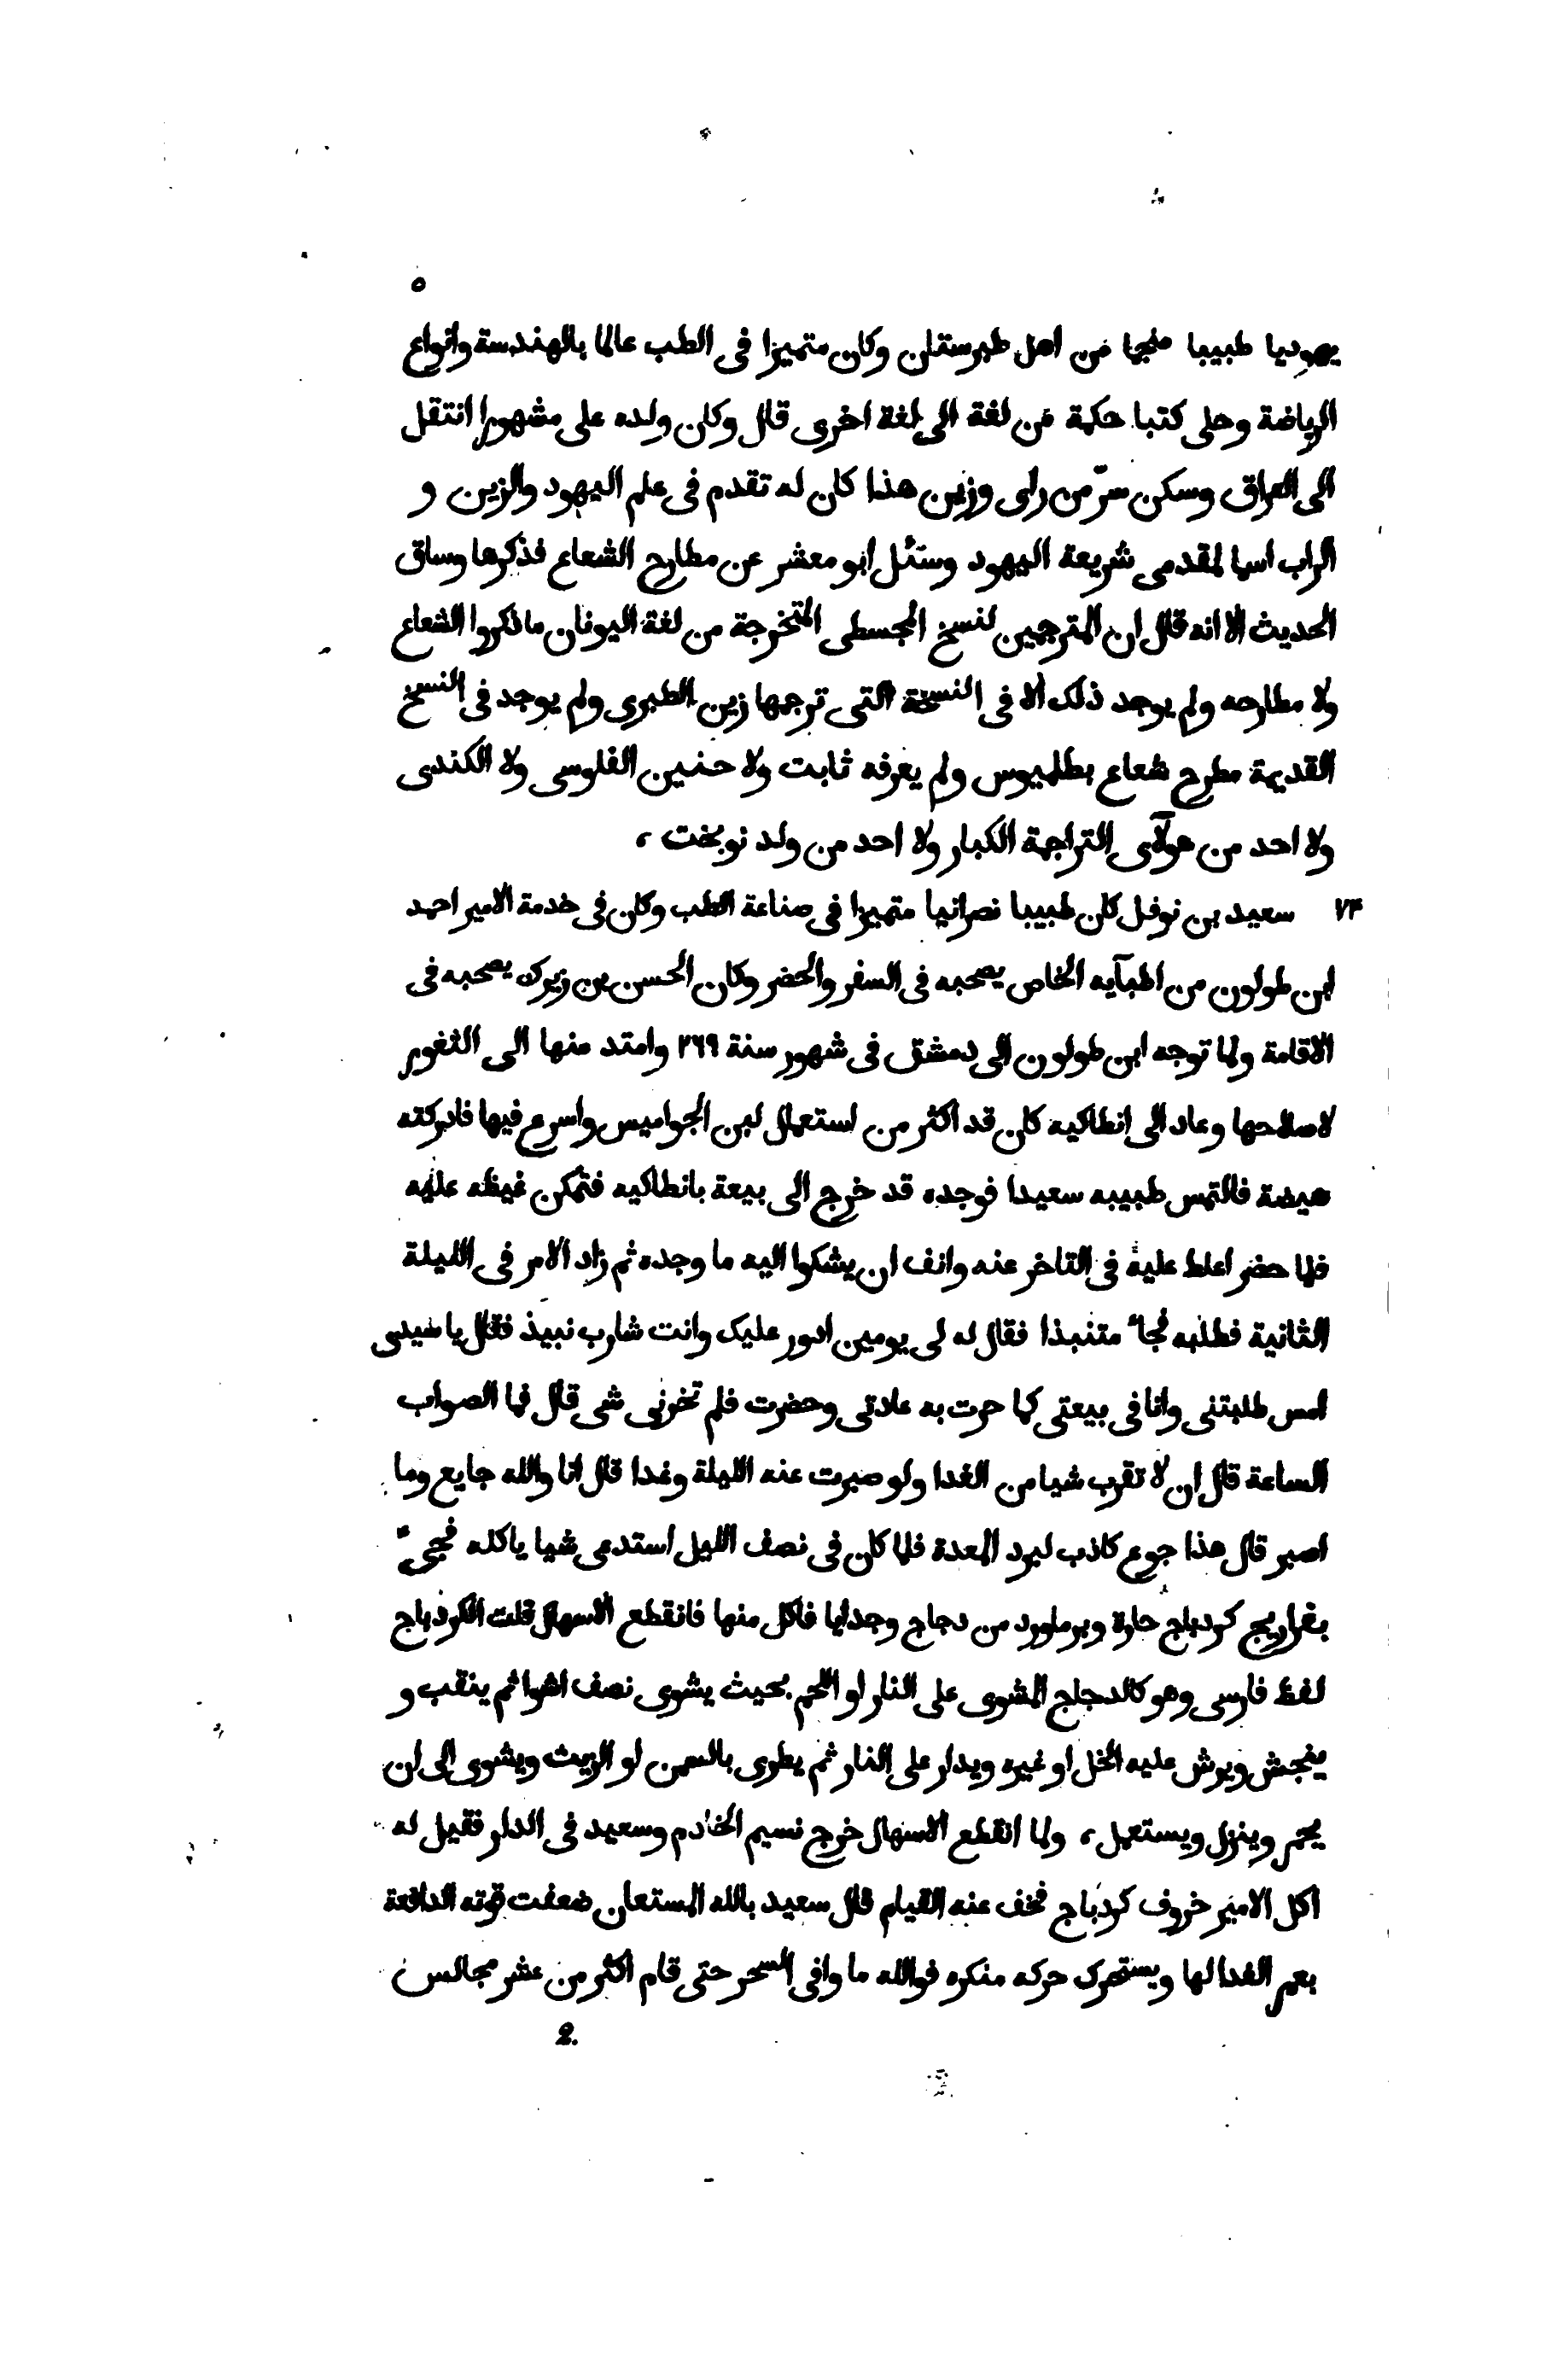 ٥
يهوديا طبيبا منجما من اهل طبرستان وكان متميزا فى الطب عالما بالهندسة وانواع
الرياضة وحلى كتبا حكمة من لغة الى لغة اخرى قال وكان ولده على مشهورا انتقل
الى العراق وسكن سرّ من راى وزين هذا كان له تقدم فى علم اليهود والزين و
الراب اسما لمقدمى شريعة اليهود وسئل ابو معشر عن مطارح الشعاع فذكرها وساق
الحديث الا انه قال ان المترجمين لنسخ المجسطى المتخرجة من لغة اليونان ما ذكروا الشعاع
ولا مطارحه ولم يوجد ذلك الا فى النسخة التى ترجمها زين الطبرى ولم يوجد فى النسخ
القديمة مطرح شعاع بطلميوس ولم يعرفه ثابت ولا حنين الفلوسى ولا الكندى
ولا احد من هولآى التراجمة الكبار ولا احد من ولد نوبخت ،
٧٣ سعيد بن نوفل كان طبيبا نصرانيا متميزا فى صناعة الطب وكان فى خدمة الامير احمد
ابن طولون من اطبآيه الخاص يصحبه فى السفر والحضر وكان الحسن بن زيرك يصحبه فى
الاقامة ولما توجه ابن طولون الى دمشق فى شهور سنة ٢٦٩ وامتد منها الى الثغور
لاصلاحها وعاد الى انطاكيه كان قد اكثر من استعمال لبن الجواميس واسرع فيها فادركته
هيضة فالتمس طبيبه سعيدا فوجده قد خرج الى بيعة بانطاكيه فتمكن غيظه عليه
فلما حضر اغلط عليه فى التاخر عنه وانف ان يشكوا اليه ما وجده ثم زاد الامر فى الليلة
الثانية فطلبه فجاء متنبذا فقال له لى يومين ادور عليك وانت شارب نبيذ فقال يا سيدى
امس طلبتنى وانا فى بيعتى كما جرت به عادتى وحضرت فلم تخبرنى شى قال فما الصواب
الساعة قال ان لا تقرب شيا من الغدا ولو صبرت عنه الليلة وغدا قال انا والله جايع وما
اصبر قال هذا جوع كاذب لبرد المعدة فلما كان فى نصف الليل استدعى شيا ياكله فجىء
بفراريج كردباج حارة وبرماورد من دجاج وجدايا فاكل منها فانقطع الاسهال قلت الكردباج
لفظ فارسى وهو كالدجاج المشوى على النار او اللحم بحيث يشوى نصف اشوا ثم ينقب و
ويرش عليه الخل او غيره ويدار على النار ثم يطرى بالسمن او الزيت ويشوى الى ان
يحمر وينزل ويستعمل ، ولما انقطع الاسهال خرج نسيم الخادم وسعيد فى الدار فقيل له
اكل الامير خروف كردباج فخف عنه القيام قال سعيد بالله المستعان ضعفت قوته الدافعة
بعمر الغدا لها ويستحرك حركه منكره فوالله ما وافى السحر حتى قام اكثر من عشر مجالس
2.